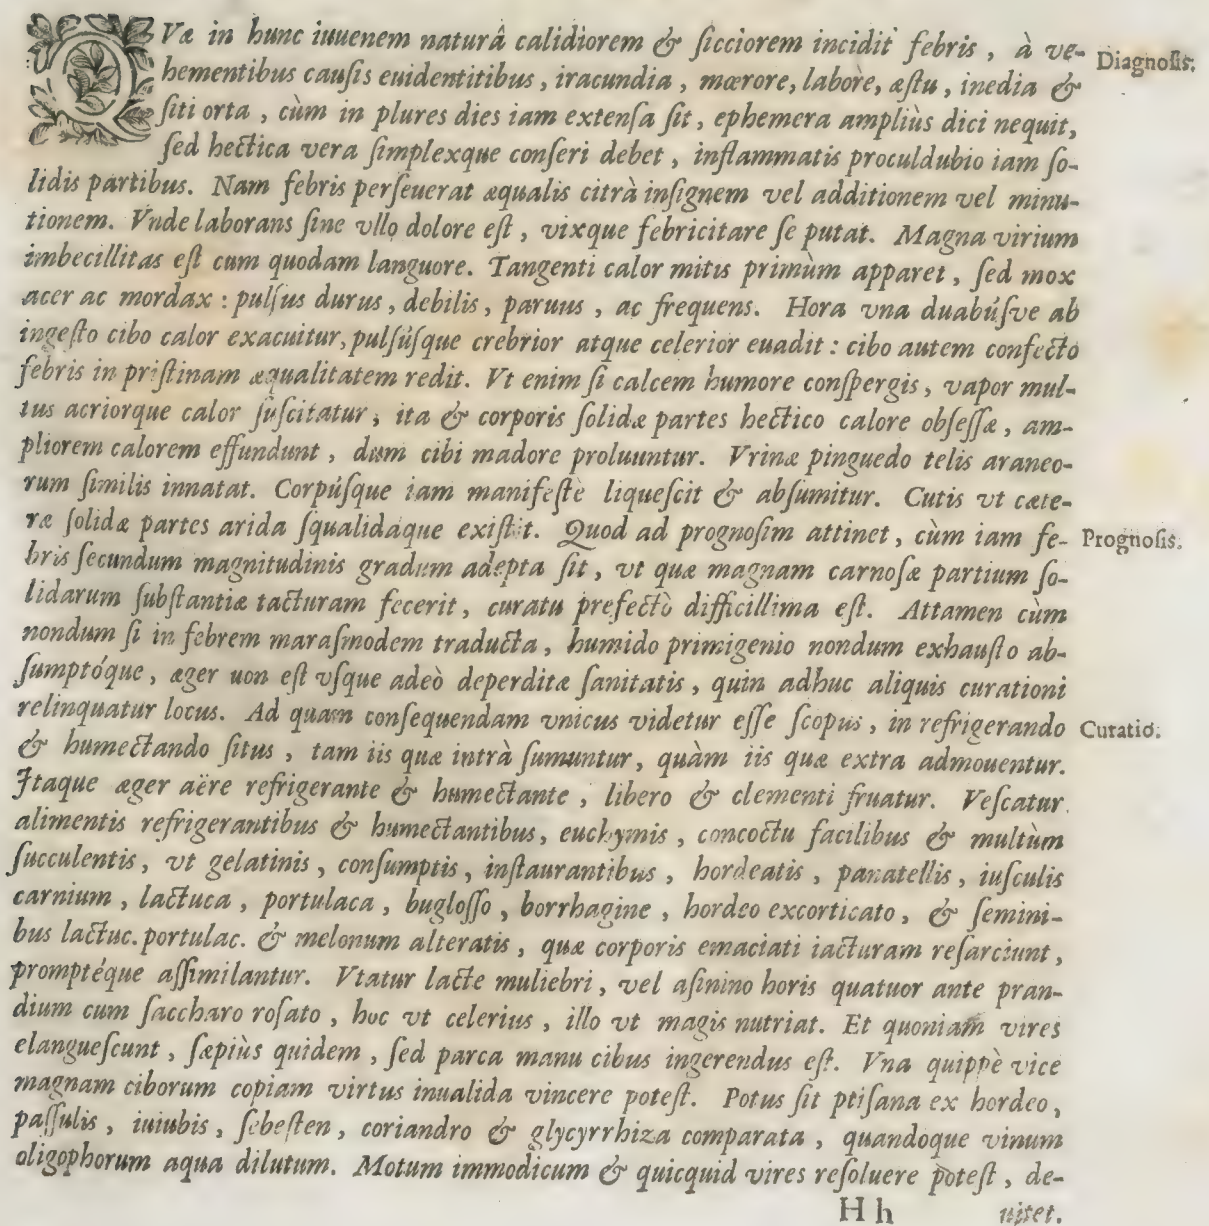 QVæ in hunc iuuenem naturâ calidiorem & ſicciorem incidit febris, à ve- Diagnoſis.
hementibus cauſis euidentitibus, iracundia, mœrore, labore, æſtu, inedia &
ſiti orta, cùm in plures dies iam extenſa ſit, ephemera ampliùs dici nequit,
ſed hectica vera ſimplexque conſeri debet, inflammatis proculdubio iam ſo-
lidis partibus. Nam febris perſeuerat æqualis citrà inſignem vel additionem vel minu-
tionem. Vnde laborans ſine vllo dolore eſt, vixque febricitare ſe putat. Magna virium
imbecillitas eſt cum quodam languore. Tangenti calor mitis primùm apparet, ſed mox
acer ac mordax: pulſus durus, debilis, paruus, ac frequens. Hora vna duabúſve ab
ingeſto cibo calor exacuitur, pulſúſque crebrior atque celerior euadit: cibo autem confecto
febris in priſtinam æqualitatem redit. Vt enim ſi calcem humore conſpergis, vapor mul-
tus acriorque calor ſuſcitatur, ita & corporis ſolidæ partes hectico calore obſeſſæ, am-
pliorem calorem effundunt, dum cibi madore proluuntur. Vrinæ pinguedo telis araneo-
rum ſimilis innatat. Corpúſque iam manifeſtè liqueſcit & abſumitur. Cutis vt cæte-
ræ ſolidæ partes arida ſqualidaque exiſtit. Quod ad prognoſim attinet, cùm iam fe- Prognoſis.
bris ſecundum magnitudinis gradum adepta ſit, vt quæ magnam carnoſæ partium ſo-
lidarum ſubſtantiæ tacturam fecerit, curatu prefectò difficillima eſt. Attamen cùm
nondum ſi in febrem maraſmodem traducta, humido primigenio nondum exhauſto ab-
ſumptóque, æger uon eſt vſque adeò deperditæ ſanitatis, quin adhuc aliquis curationi
relinquatur locus. Ad quam conſequendam vnicus videtur eſſe ſcopus, in refrigerando Curatio.
& humectando ſitus, tam iis quæ intrà ſumuntur, quàm iis quæ extra admouentur.
Itaque æger aëre refrigerante & humectante, libero & clementi fruatur. Veſcatur
alimentis refrigerantibus & humectantibus, euchymis, concoctu facilibus & multùm
ſucculentis, vt gelatinis, conſumptis, inſtaurantibus, hordeatis, panatellis, iuſculis
carnium, lactuca, portulaca, bugloſſo, borrhagine, hordeo excorticato, & ſemini-
bus lactuc. portulac. & melonum alteratis, quæ corporis emaciati iacturam reſarciunt,
promptéque aſſimilantur. Vtatur lacte muliebri, vel aſinino horis quatuor ante pran-
dium cum ſaccharo roſato, hoc vt celerius, illo vt magis nutriat. Et quoniam vires
elangueſcunt, ſæpiùs quidem, ſed parca manu cibus ingerendus eſt. Vna quippè vice
magnam ciborum copiam virtus inualida vincere poteſt. Potus ſit ptiſana ex hordeo,
paſſulis, iuiubis, ſebeſten, coriandro & glycyrrhiza comparata, quandoque vinum
oligophorum aqua dilutum. Motum immodicum & quicquid vires reſoluere poteſt, de-
H h uitet.